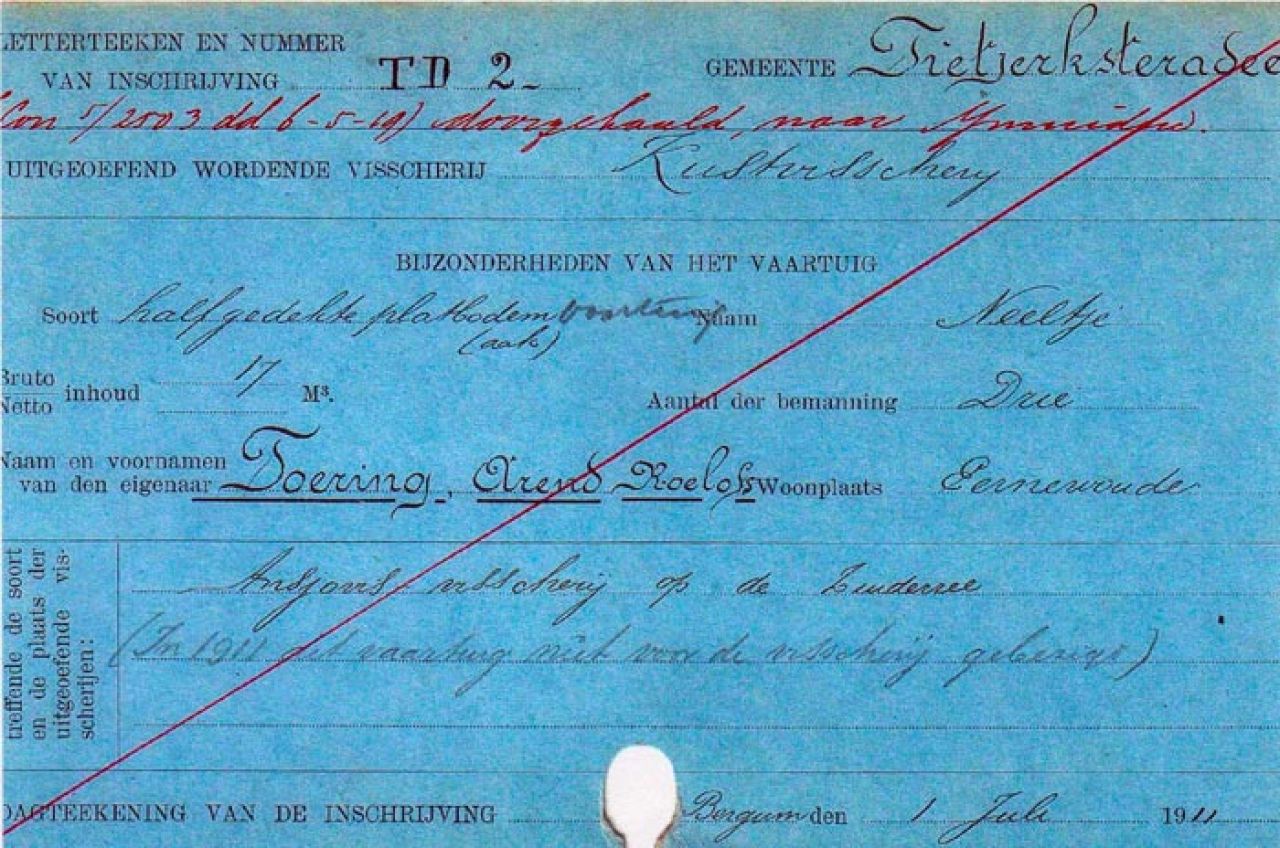 LETTERTEEKEN EN NUMMER
VAN INSCHRIJVING TD 2 - GEMEENTE Tietjerksteradee
5/2503 dd 6-5-19) doorgehaald, naar Ymuiden.
UITGEOEFEND WORDENDE VISSCHERIJ Kustvisscherij
BIJZONDERHEDEN VAN HET VAARTUIG
Soort halfgedekte platbodem vaartuig Naam Neeltje
(aak)
Bruto 17
Netto inhoud M³. Aantal der bemanning Drie
Naam en voornamen
van den eigenaar Toering, Arend Roelofs Woonplaats Eernewoude
treffende de soort
en de plaats der
uitgeoefende vis-
scherijen:
Ansjovis visscherij op de Zuiderzee
(In 1911 dit vaartuig niet voor de visscherij gebezigd)
DAGTEEKENING VAN DE INSCHRIJVING Bergum den 1 Juli 1911